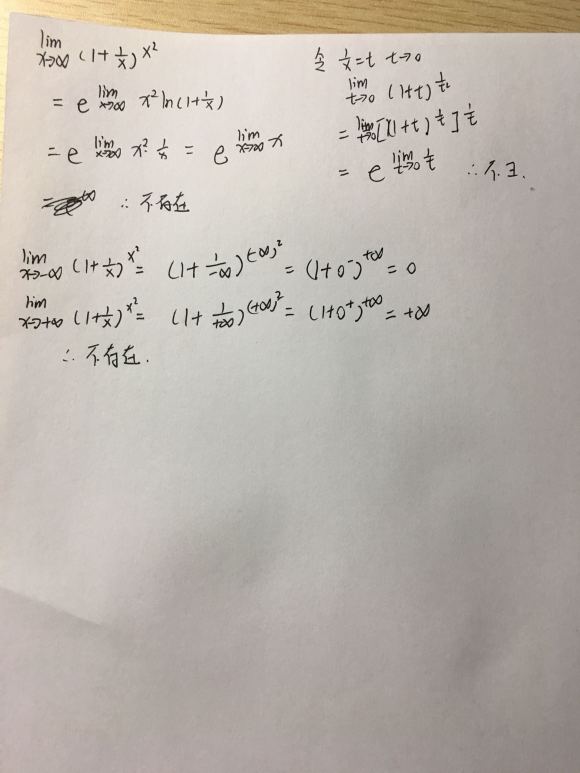 lim x→∞ (1+1/x)^x²
= e^lim x→∞ x² ln(1+1/x)
= e^lim x→∞ x²·1/x = e^lim x→∞ x
∴ 不存在
令 1/x=t t→0
lim t→0 (1+t)^1/t²
= lim t→0 [(1+t)^1/t]^1/t
= e^lim t→0 1/t ∴不∃.
lim x→-∞ (1+1/x)^x² = (1+1/-∞)^(-∞)² = (1+0⁻)^+∞ = 0
lim x→+∞ (1+1/x)^x² = (1+1/+∞)^(+∞)² = (1+0⁺)^+∞ = +∞
∴ 不存在.